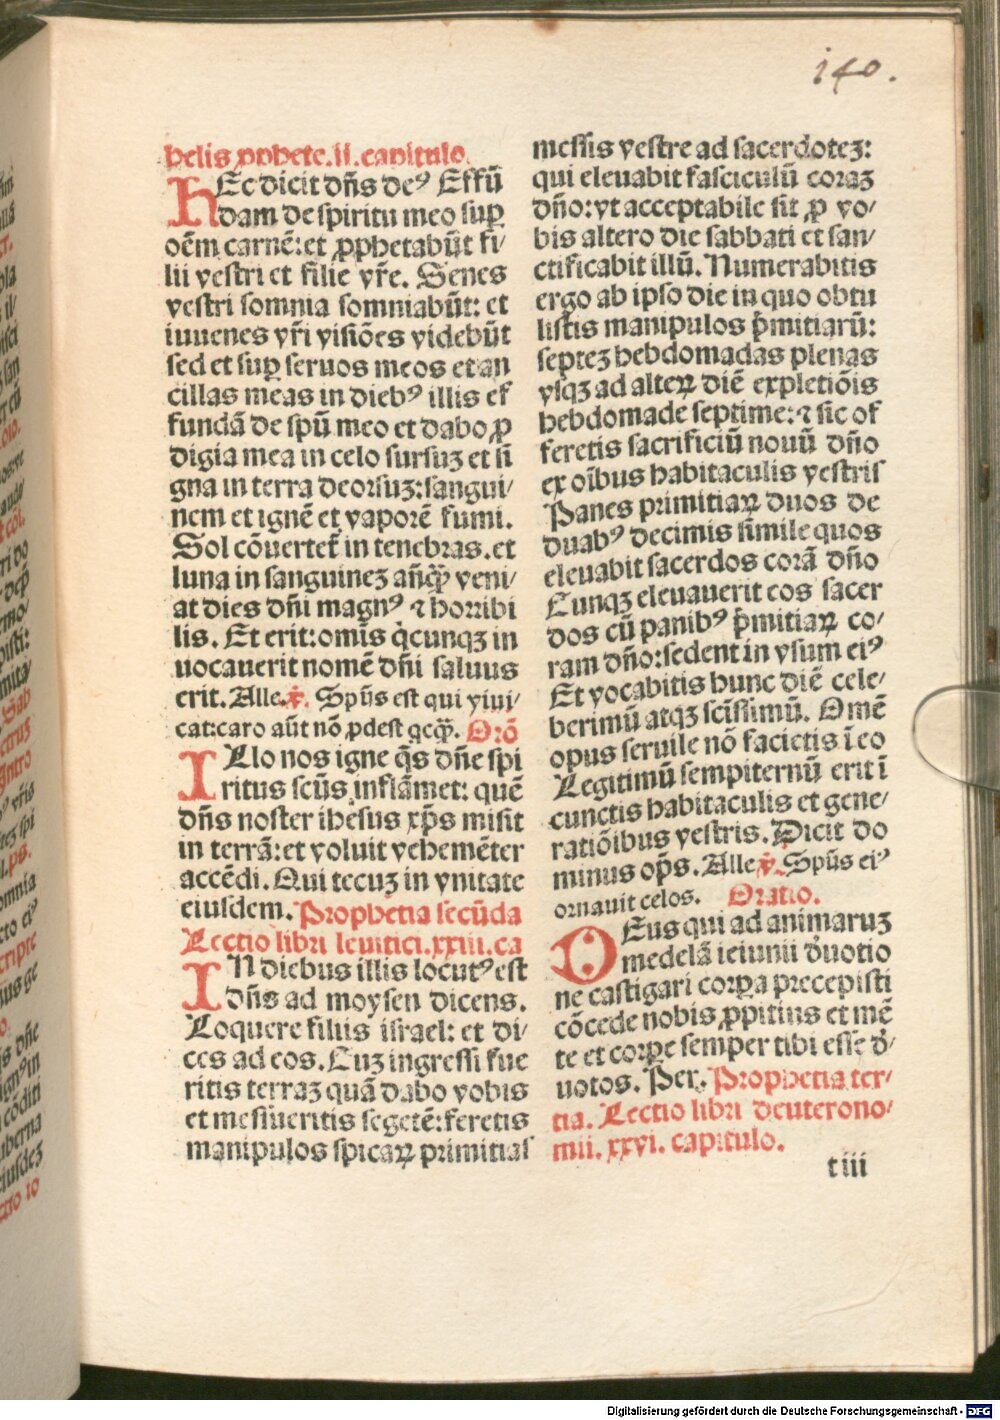 140.
helis ꝓphete.ii.capitulo.
HEc dicit dn̄s deꝰ Effū
dam de spiritu meo suꝑ
oēm carnē:et ꝓphetabūt fi/
lii vestri et filie vr̄e. Senes
vestri somnia somniabūt: et
iuuenes vr̄i visiōes videbūt
sed et suꝑ seruos meos et an
cillas meas in diebꝰ illis ef
fundā de spū meo et dabo ꝓ
digia mea in celo sursuꝫ et si
gna in terra deorsuꝫ:sangui/
nem et ignē et vaporē fumi.
Sol cōuertet̄ in tenebras.et
luna in sanguineꝫ an̄qꝫ̄ veni/
at dies dn̄i magnꝰ ⁊ horribi
lis. Et erit:omīs q̇cunqꝫ in
uocauerit nomē dn̄i saluus
erit. Alle.℣. Spūs est qui viui/
cat:caro aūt nō ꝓdest qcqꝫ̄. Orō
ILlo nos igne q̄s dn̄e spi
ritus scūs inflāmet: quē
dn̄s noster ihesus xp̄s misit
in terrā:et voluit vehemēter
accēdi. Qui tecuꝫ in vnitate
eiusdem. Prophetia secūda
Lectio libri leuitici.xxiii.ca
IN diebus illis locutꝰ est
dn̄s ad moysen dicens.
Loquere filiis israel: et di/
ces ad eos. Cuꝫ ingressi fue
ritis terraꝫ quā dabo vobis
et messueritis segetē:feretis
manipulos spicaꝝ primitias
messis vestre ad sacerdoteꝫ:
qui eleuabit fasciculū coraꝫ
dn̄o:vt acceptabile sit ꝓ vo/
bis altero die sabbati et san/
ctificabit illū. Numerabitis
ergo ab ipso die in quo obtu
listis manipulos p̄mitiarū:
septeꝫ hebdomadas plenas
vsqꝫ ad alteꝝ diē expletiōis
hebdomade septime:⁊ sic of
feretis sacrificiū nouū dn̄o
ex oībus habitaculis vestris
Panes primitiaꝝ duos de
duabꝰ decimis simile quos
eleuabit sacerdos corā dn̄o
Cunqꝫ eleuauerit eos sacer
dos cū panibꝰ p̄mitiaꝝ co/
ram dn̄o:sedent in vsum eiꝰ
Et vocabitis hunc diē cele/
berimū atqꝫ scīssimū. Omē
opus seruile nō facietis ī eo
Legitimū sempiternū erit ī
cunctis habitaculis et gene/
ratiōibus vestris. Dicit do
minus op̄s. Alle ℣. Spūs eiꝰ
ornauit celos. Oratio.
DEus qui ad animaruꝫ
medelā ieiunii d̓uotio
ne castigari corꝑa precepisti
cōcede nobis ꝓpitius et mē
te et corꝑe semper tibi esse d̓/
uotos. Per. Prophetia ter/
tia. Lectio libri deuterono/
mii. xxvi. capitulo.
t iii
Digitalisierung gefördert durch die Deutsche Forschungsgemeinschaft - DFG